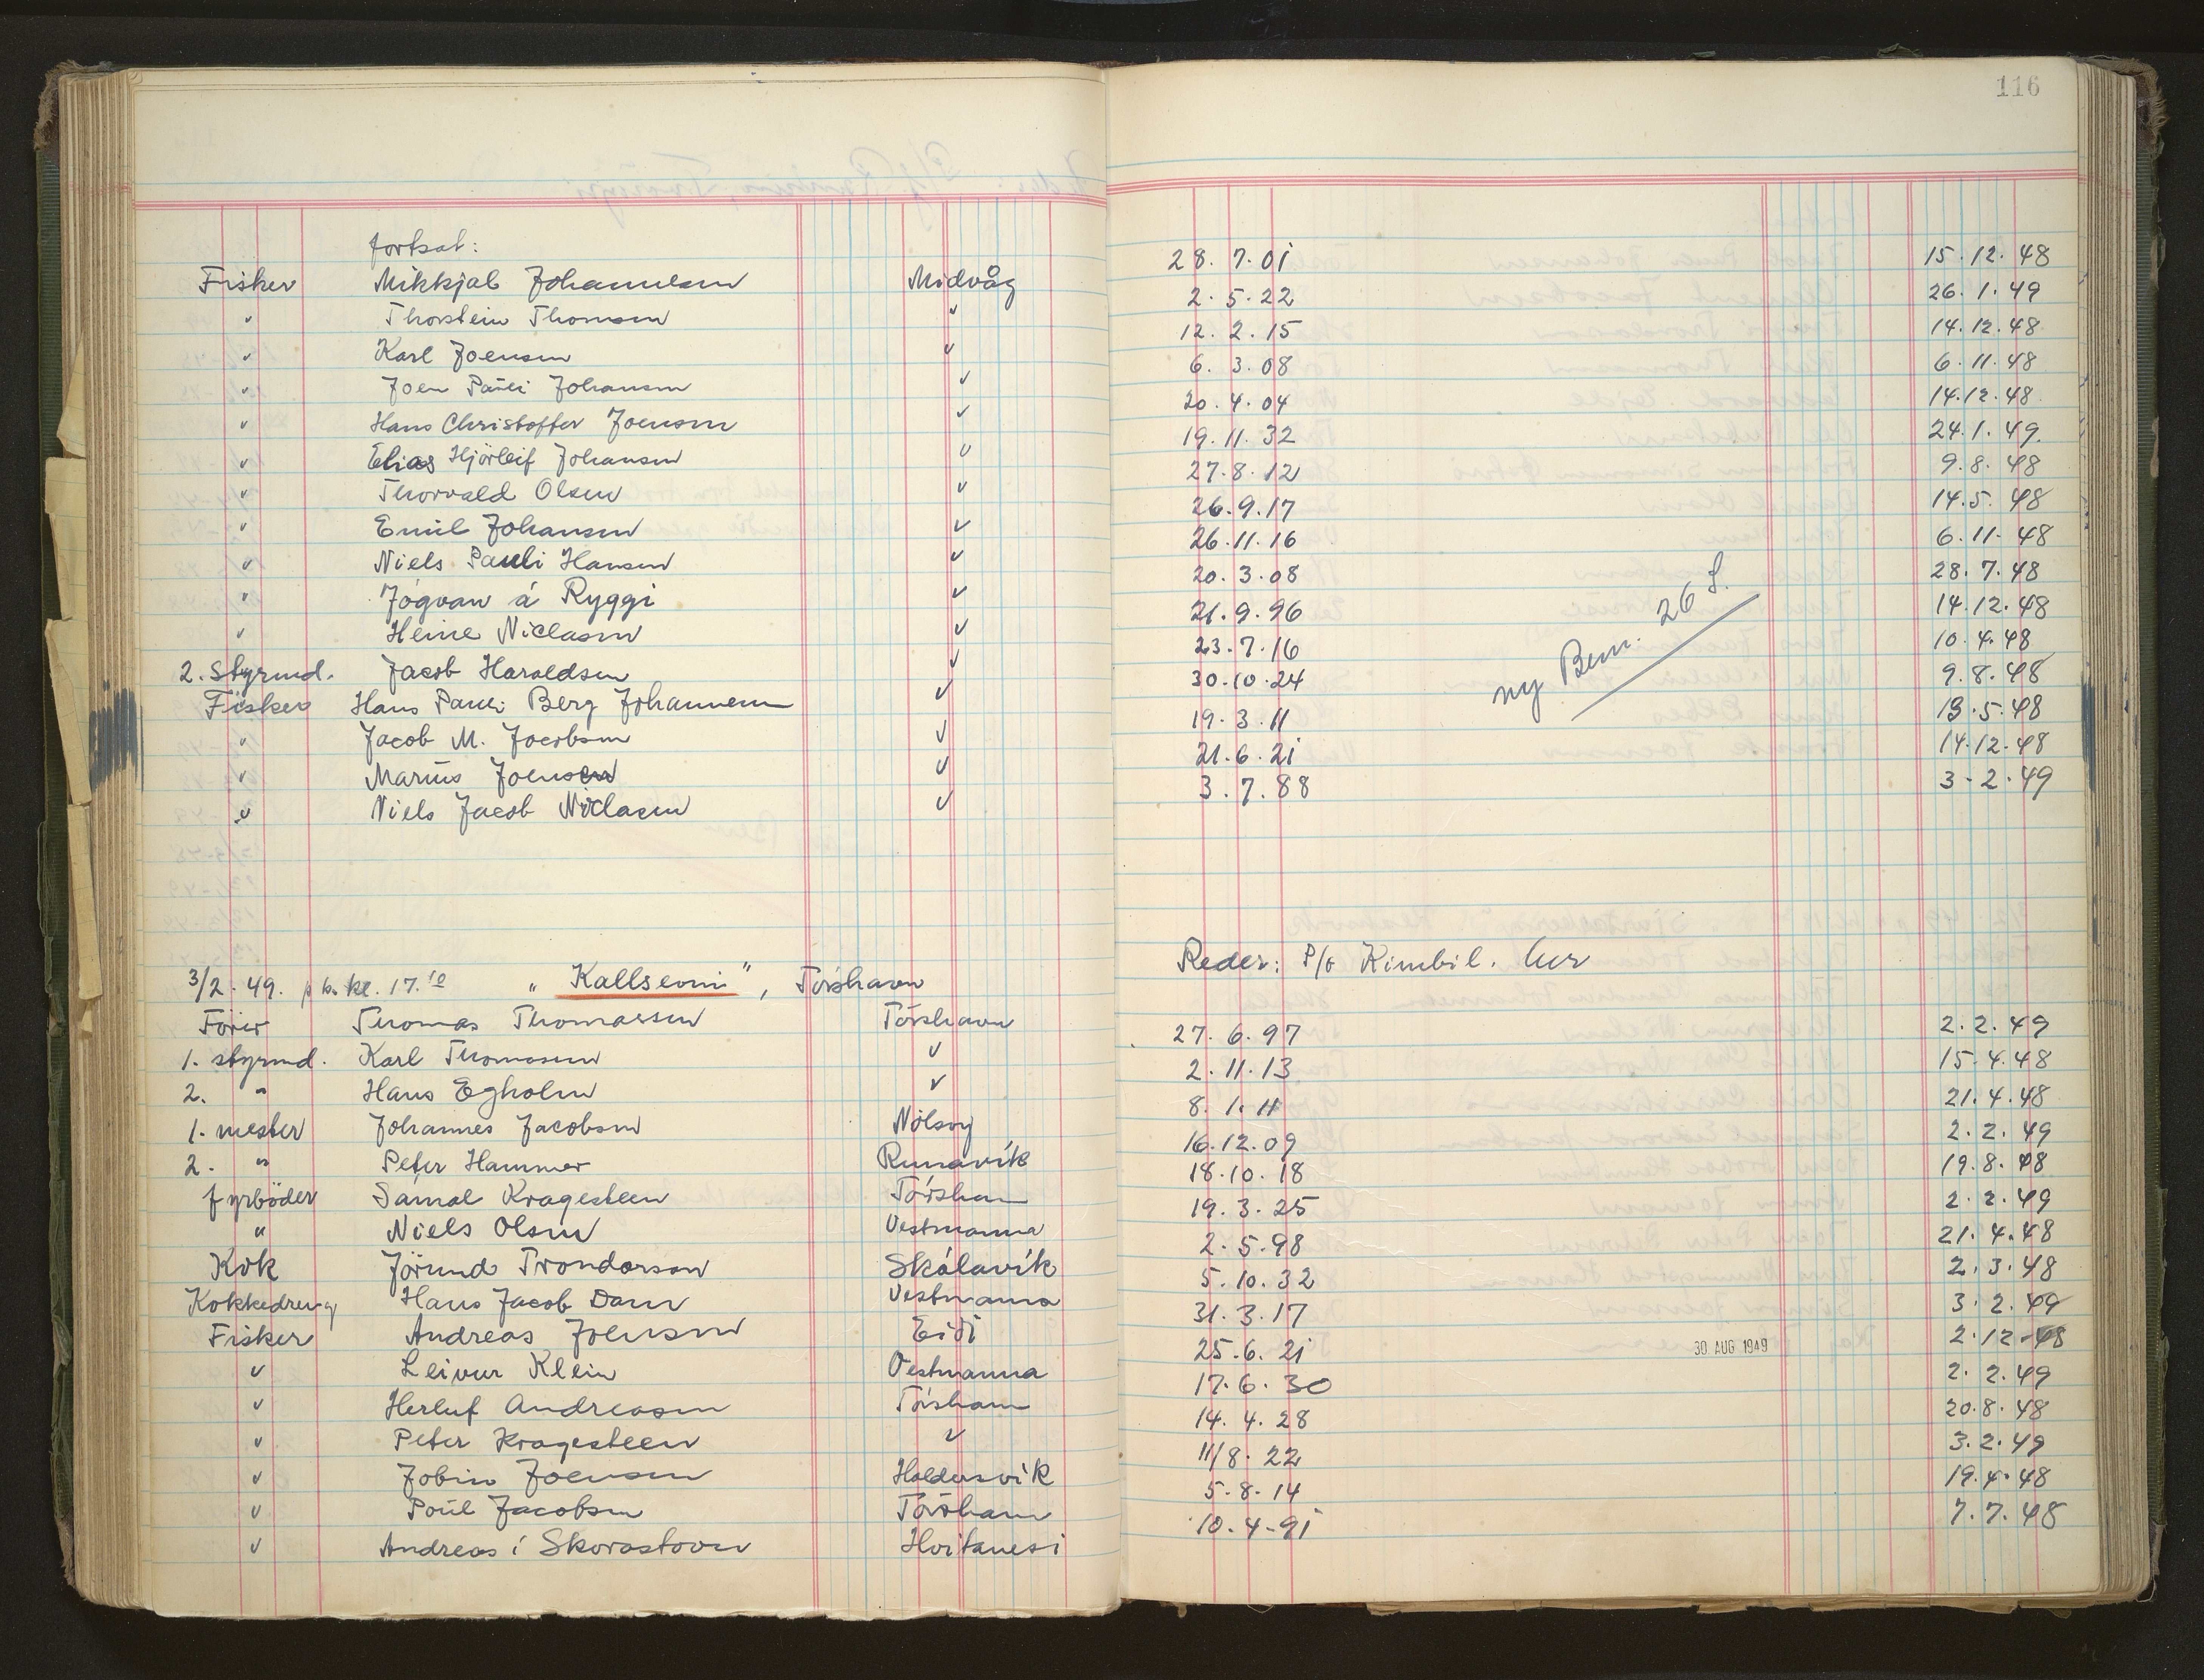 116
fortsat:
Fisker Mikkjal Johannesen Midvåg 28. 7. 01 15. 12. 48
" Thorstein Thomsen " 2. 5. 22 26. 1. 49
" Karl Joensen " 12. 2. 15 14. 12. 48
" Joen Pauli Johansen " 6. 3. 08 6. 11. 48
" Hans Christoffer Joensen " 20. 4. 04 14. 12. 48
" Elias Hjörleif Johansen " 19. 11. 32 24. 1. 49
" Thorvald Olsen " 27. 8. 12 9. 8. 48
" Emil Johansen " 26. 9. 17 14. 5. 48
" Niels Pauli Hansen " 26. 11. 16 6. 11. 48
" Jógvan á Ryggi " 20. 3. 08 28. 7. 48
" Heine Niclasen " 21. 9. 96 14. 12. 48
2. Styrmd. Jacob Haraldsen " 23. 7. 16 10. 4. 48
Fisker Hans Pauli Berg Johannesen " 30. 10. 24 9. 8. 48
" Jacob M. Jacobsen " 19. 3. 11 13. 5. 48
" Marius Joensen " 21. 6. 21 14. 12. 48
" Niels Jacob Niclasen " 3. 7. 88 3. 2. 49
ny Bem. 26 S.
3/2. 49. kl. 17.10 "Kallsevni", Tórshavn Reder: P/f
Förer Thomas Thomassen Tórshavn 27. 6. 97 2. 2. 49
1. styrmd. Karl Thomasen " 2. 11. 13 15. 4. 48
2. " Hans Egholm " 8. 1. 11 21. 4. 48
1. mester Johannes Jacobsen Nólsoy 16. 12. 09 2. 2. 49
2. " Peter Hammer Runavík 18. 10. 18 19. 8. 48
fyrböder Sámal Kragesteen Tórshavn 19. 3. 25 2. 2. 49
" Niels Olsen Vestmanna 2. 5. 98 21. 4. 48
Kok Jörund Trondarson Skálavík 5. 10. 32 2. 3. 48
Kokkedreng Hans Jacob Dam Vestmanna 31. 3. 17 3. 2. 49
Fisker Andreas Joensen Eidi 25. 6. 21 30 AUG 1949 2. 12. 48
" Leivur Klein Vestmanna 17. 6. 30 2. 2. 49
" Herluf Andreasen Tórshavn 14. 4. 28 20. 8. 48
" Peter Kragesteen " 11/8. 22 3. 2. 49
" Jobin Joensen Haldersvík 5. 8. 14 19. 4. 48
" Poul Jacobsen Tórshavn 10. 4. 91 7. 7. 48
" Andreas í Skorastovu Hvitanesi